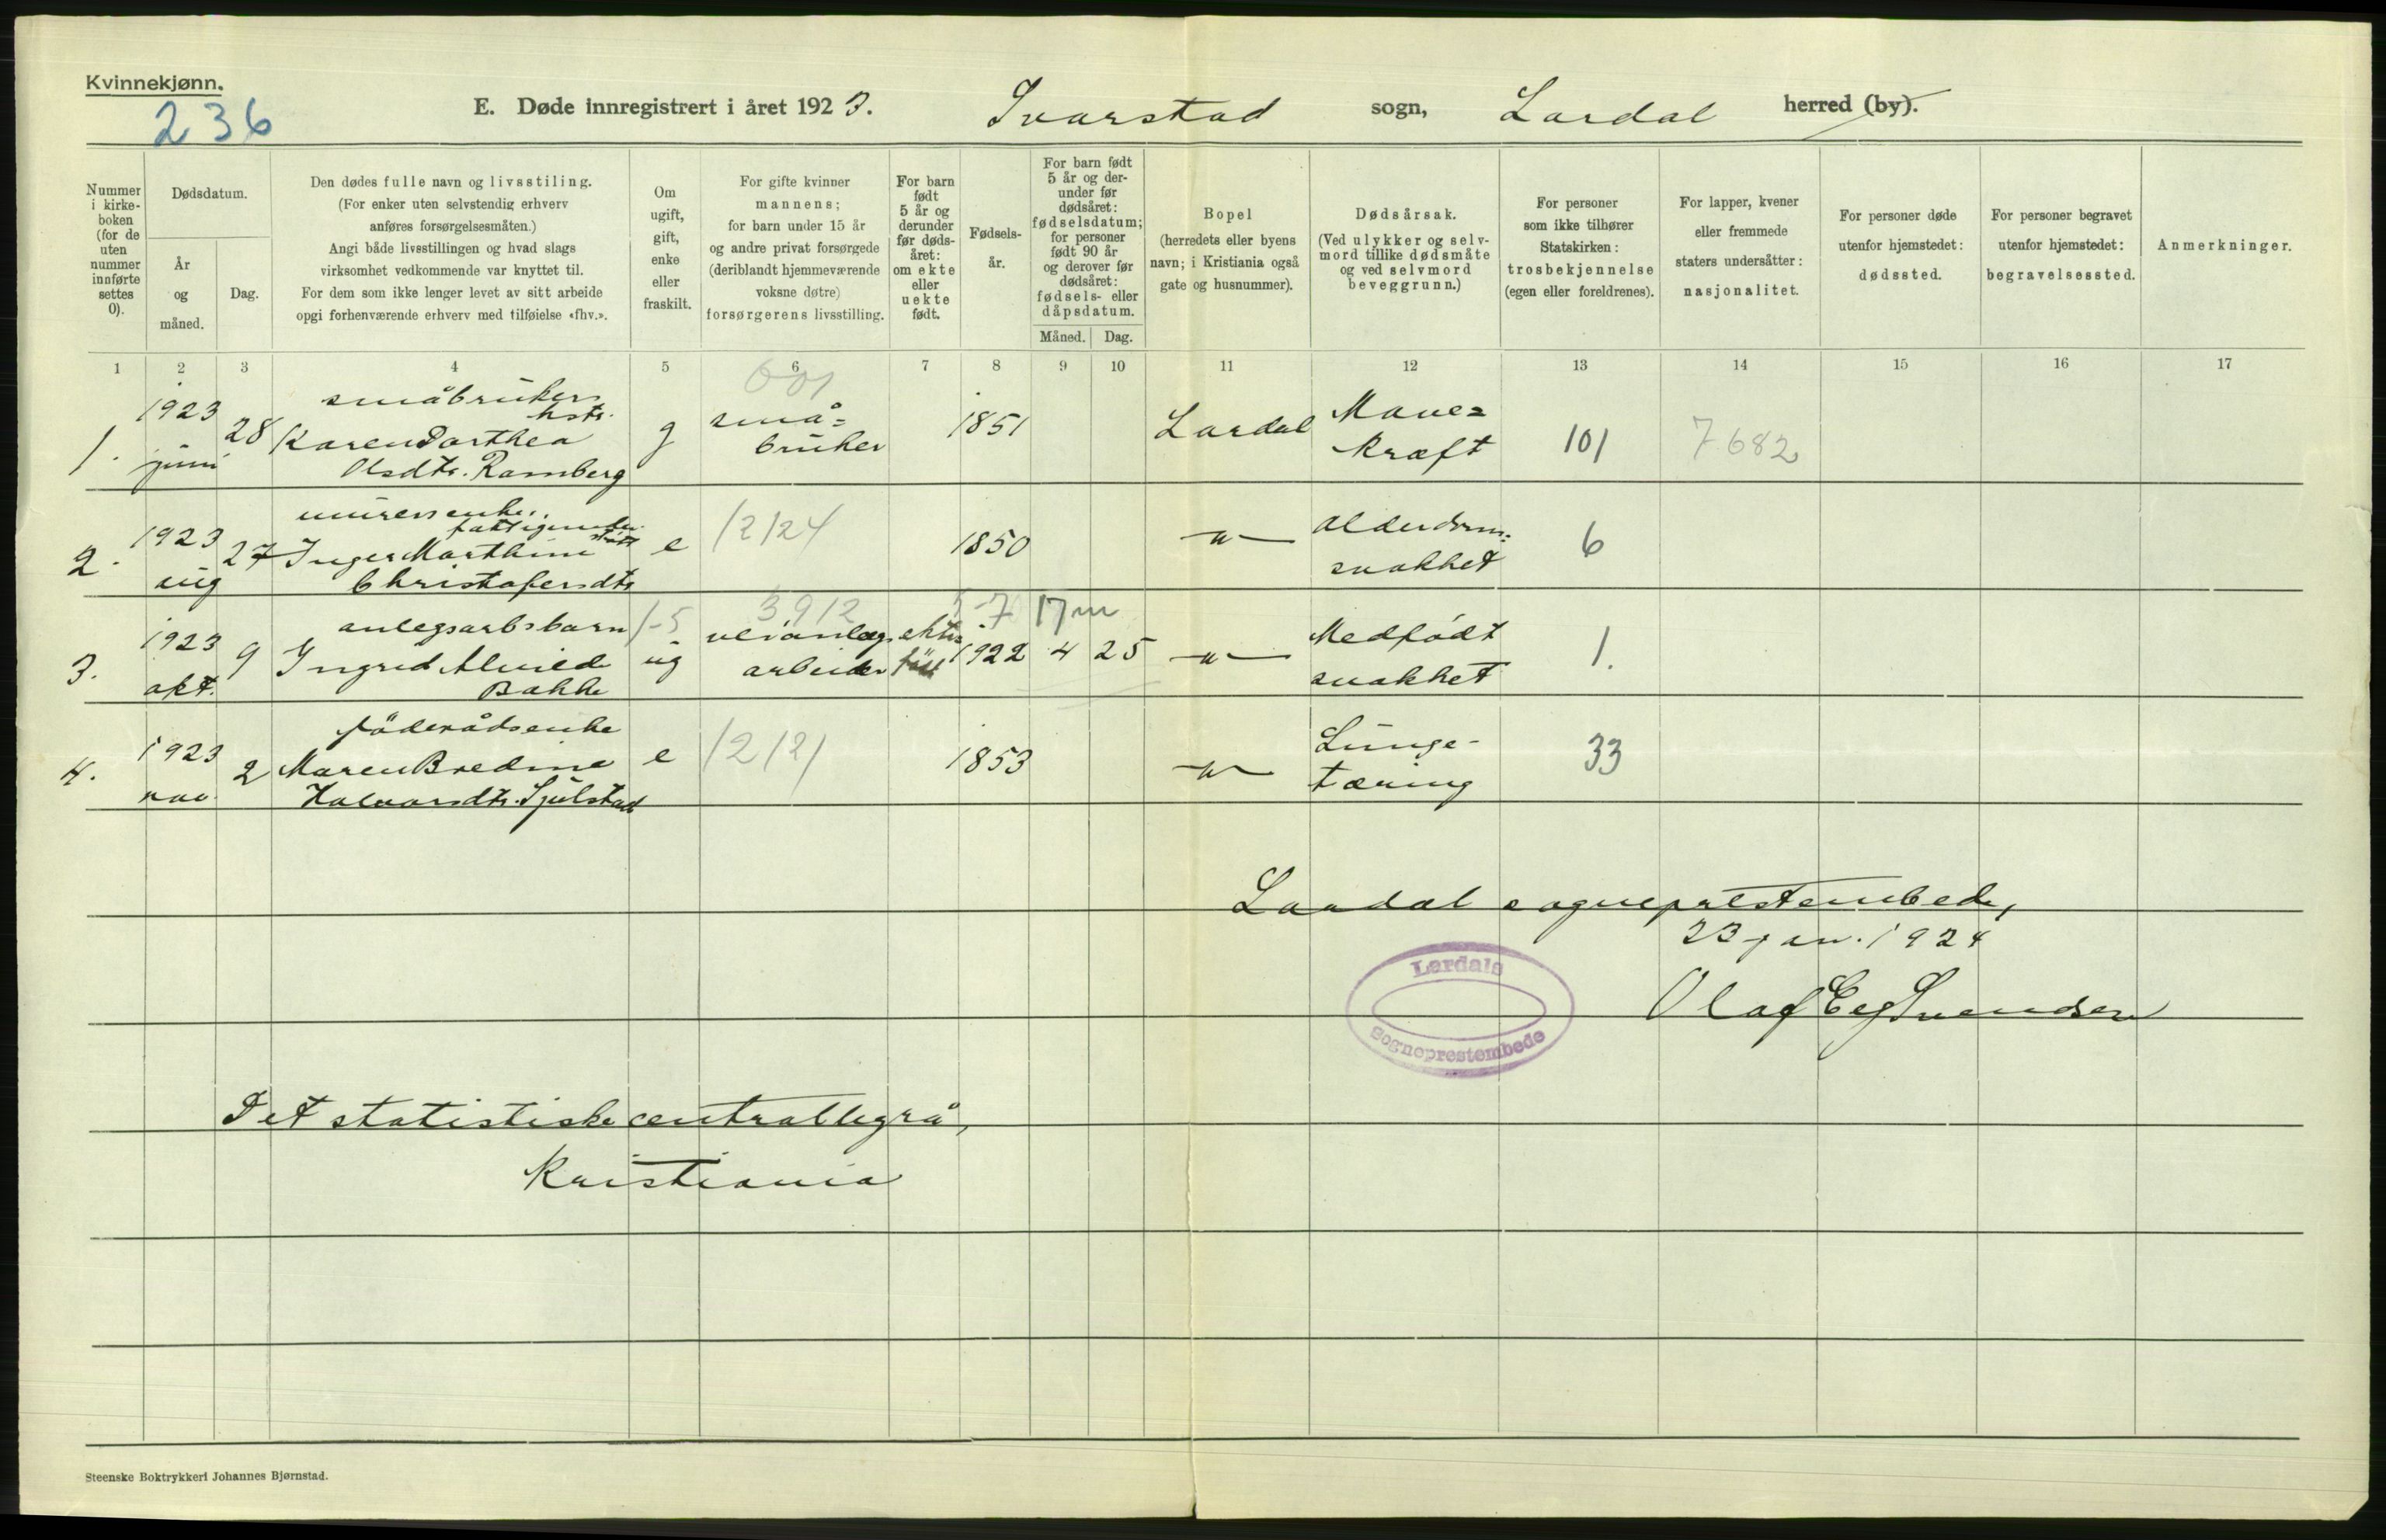 Kvinnekjønn.
236
E. Døde innregistrert i året 1923. Svarstad sogn, Lardal herred (by).
Nummer i kirke- boken (for de uten nummer innførte settes 0).
Dødsdatum.
År og måned.
Dag.
Den dødes fulle navn og livsstiling.
(For enker uten selvstendig erhverv
anføres forsørgelsesmåten.)
Angi både livsstillingen og hvad slags
virksomhet vedkommende var knyttet til.
For dem som ikke lenger levet av sitt arbeide
opgi forhenværende erhverv med tilføielse «fhv.».
Om ugift, gift, enke eller fraskilt.
For gifte kvinner
mannens;
for barn under 15 år
og andre privat forsørgede
(deriblandt hjemmeværende
voksne døtre)
forsørgerens livsstilling.
For barn født 5 år og derunder før døds- året: om ekte eller uekte født.
Fødsels- år.
For barn født 5 år og der- under før dødsåret: fødselsdatum; for personer født 90 år og derover før dødsåret: fødsels- eller dåpsdatum.
Måned. Dag.
Bopel
(herredets eller byens
navn; i Kristiania også
gate og husnummer).
Dødsårsak.
(Ved ulykker og selv-
mord tillike dødsmåte
og ved selvmord
beveggrunn.)
For personer
som ikke tilhører
Statskirken:
trosbekjennelse
(egen eller foreldrenes).
For lapper, kvener
eller fremmede
staters undersåtter:
nasjonalitet.
For personer døde
utenfor hjemstedet:
dødssted.
For personer begravet
utenfor hjemstedet:
begravelsessted.
Anmerkninger.
1 2 3 4 5 6 7 8 9 10 11 12 13 14 15 16 17
1. 1923 juni 28 småbrukers hstr. Karen Dorthea Olsdtr. Ramberg g små= bruker 1851 Lardal Mave= kræft 101 7682
2. 1923 aug 27 Inger Marthine Christofersdtr e 12124 1850 —"— Alderdoms= svakhet 6
3. 1923 okt. 9 anlegsarbsbarn Ingrid Alvilde Bakke 1-5 ug 3912 arbeider 5-7 17 m 1922 4 25 —"— Medfødt svakhet 1.
4. 1923 nov. 2 föderådsenke Maren Bredine Halvorsdtr. Sjulstad e 12121 1853 —"— Lunge- tæring 33
Lardal sogneprestembede,
23 jan. 1924
Lardals
sogneprestembede
Olaf Eeg Svendsen
Det statistiske centralbyrå,
Kristiania
Steenske Boktrykkeri Johannes Bjørnstad.